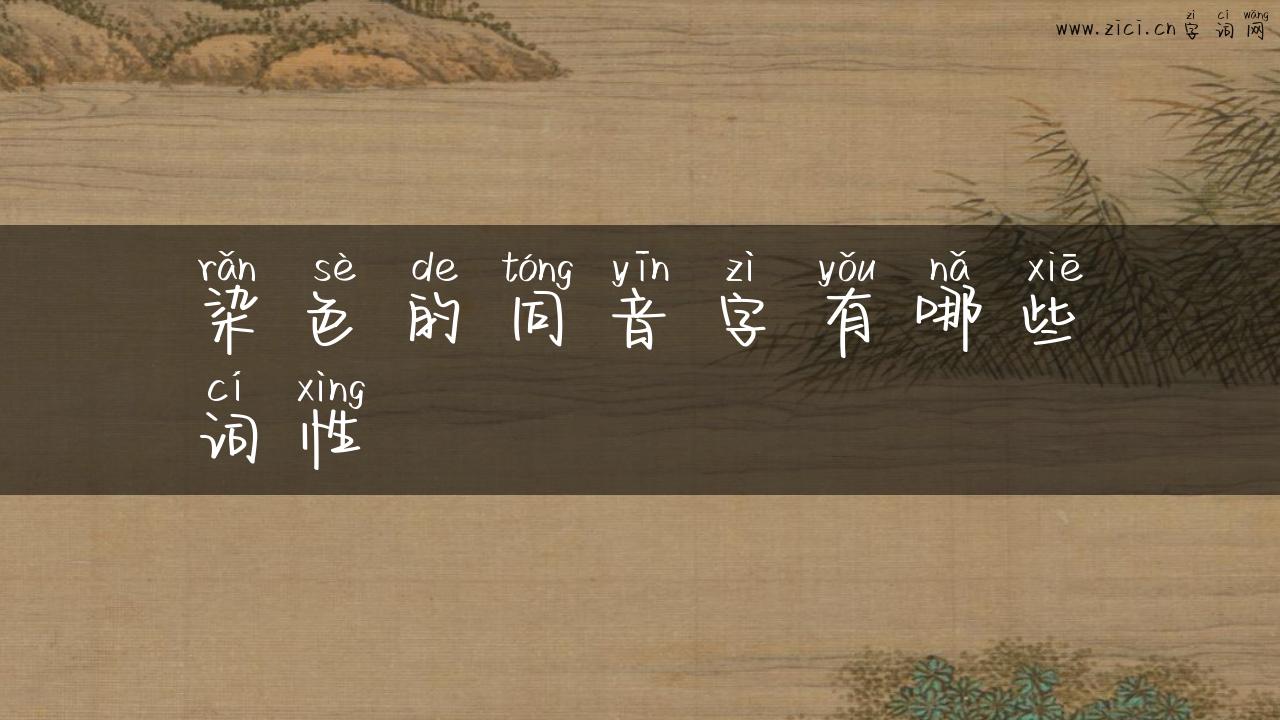 zì cí wǎng
www.zici.cn 字词网
rǎn sè de tóng yīn zì yǒu nǎ xiē
染色的同音字有哪些
cí xìng
词性